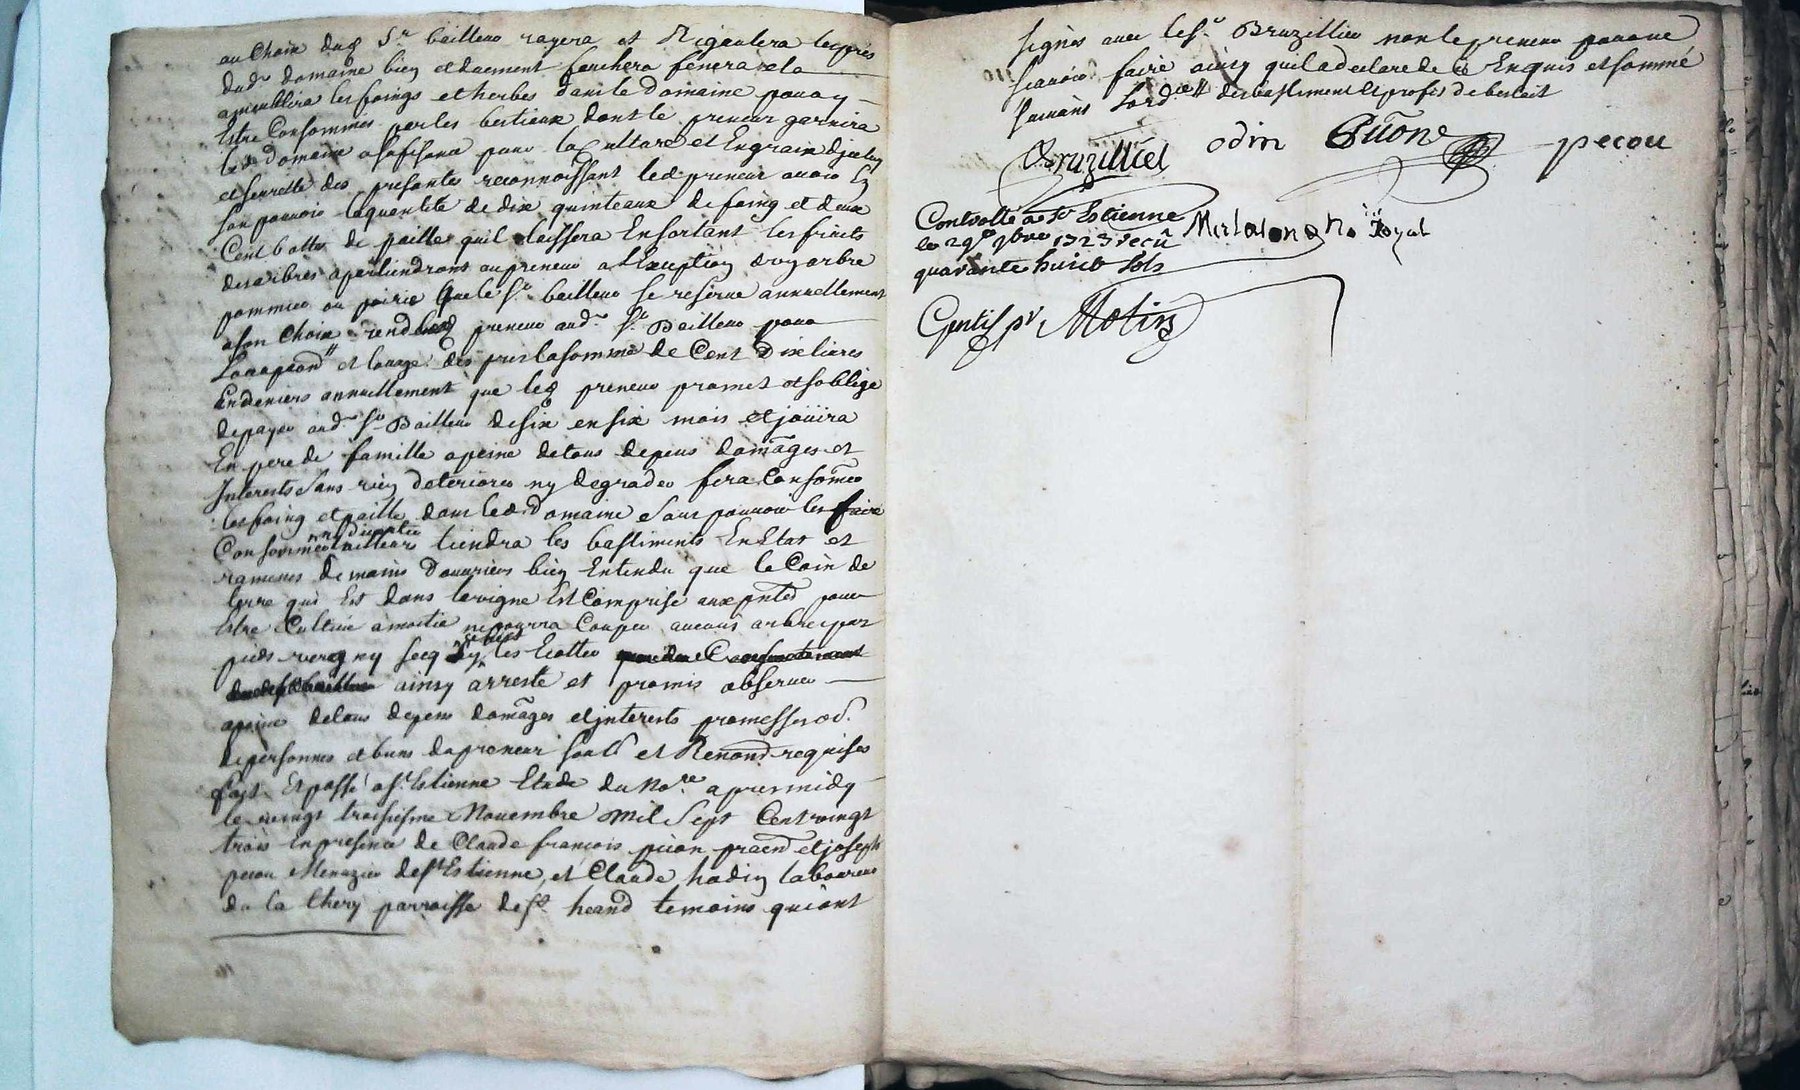 au Choix dud Sr bailleur rayera et Rigaulera les prés
dud domaine bien et duement fauchera fenera et a
les foings et herbes dans le domaine pour y
Estre Consommes par les bestieaux dont le preneur garnira
led domaine a sufisance pour la Culture et Engraix
et seurette des presentes reconnoissant led preneur avoir En
son pouvoir la quentité de dix quinteaux de foing et deux
Cent bottes de paille quil laissera En sortant les fruits
des arbres apartiendront au preneur a lException dun arbre
pommier ou poirier que le Sr bailleur se reserve annuellement
a son Choix rendra led preneur aud Sr Bailleur pour
et louage des prix la somme de Cent dix livres
En deniers annuellement que led preneur promet et soblige
de payer aud Sr Bailleur de six en six mois et joüira
En pere de famille a peine de tous depens domages et
Interests sans rien deteriorer ny degrader fera Consomer
les foing et paille dans led domaine sans pouvoir les faire
Consommer ny divertir ailleurs tiendra les bastiments En Estat et
ramenés de mains douvriers bien Entendu que le Coin de
terre qui Est dans la vigne Est Comprise aux pntes pour
Estre Cultivé a moitié ne pourra Couper aucuns arbres par
pieds vereg ny secq les
ainsy arresté et promis observer
a peine de tous depens domages et interests promesses od.
de personnes et biens du preneur soub et Renond requises
fait Et passé a St Estienne Etude du Nore apres midy
le vingt troisiesme Novembre mil Sept Cent vingt
trois En presence de Claude françois pcion pratd et joseph
pecou Menuzier de St Estienne, et Claude hodin laboureur
de la Chery parroisse de St heand temoins qui ont
signés avec le Sr Bruzilliet non le preneur pour ne
scavoir faire ainsy quil a declaré de ce Enquis et sommé
suivans lordce des bastiment et profis de bestail
Bruzilliet odin Piione pecou
Controllé a St Estienne
le 29e 9bre 1723 recû
quarante huict sols
Royal
Gentil pr Molin